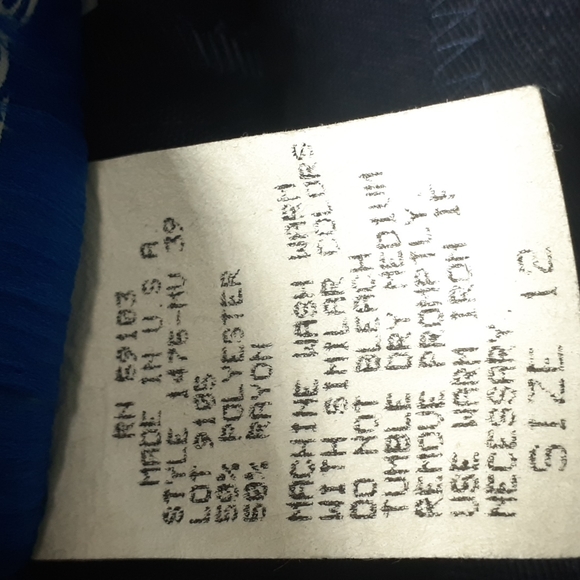 RN 59183
MADE IN U.S A
STYLE 1475-MV 39
LOT 9195
50% POLYESTER
50% RAYON
MACHINE WASH WARM
WITH SIMILAR COLORS
DO NOT BLEACH
TUMBLE DRY MEDIUM
REMOVE PROMPTLY
USE WARM IRON IF
NECESSARY.
SIZE 12